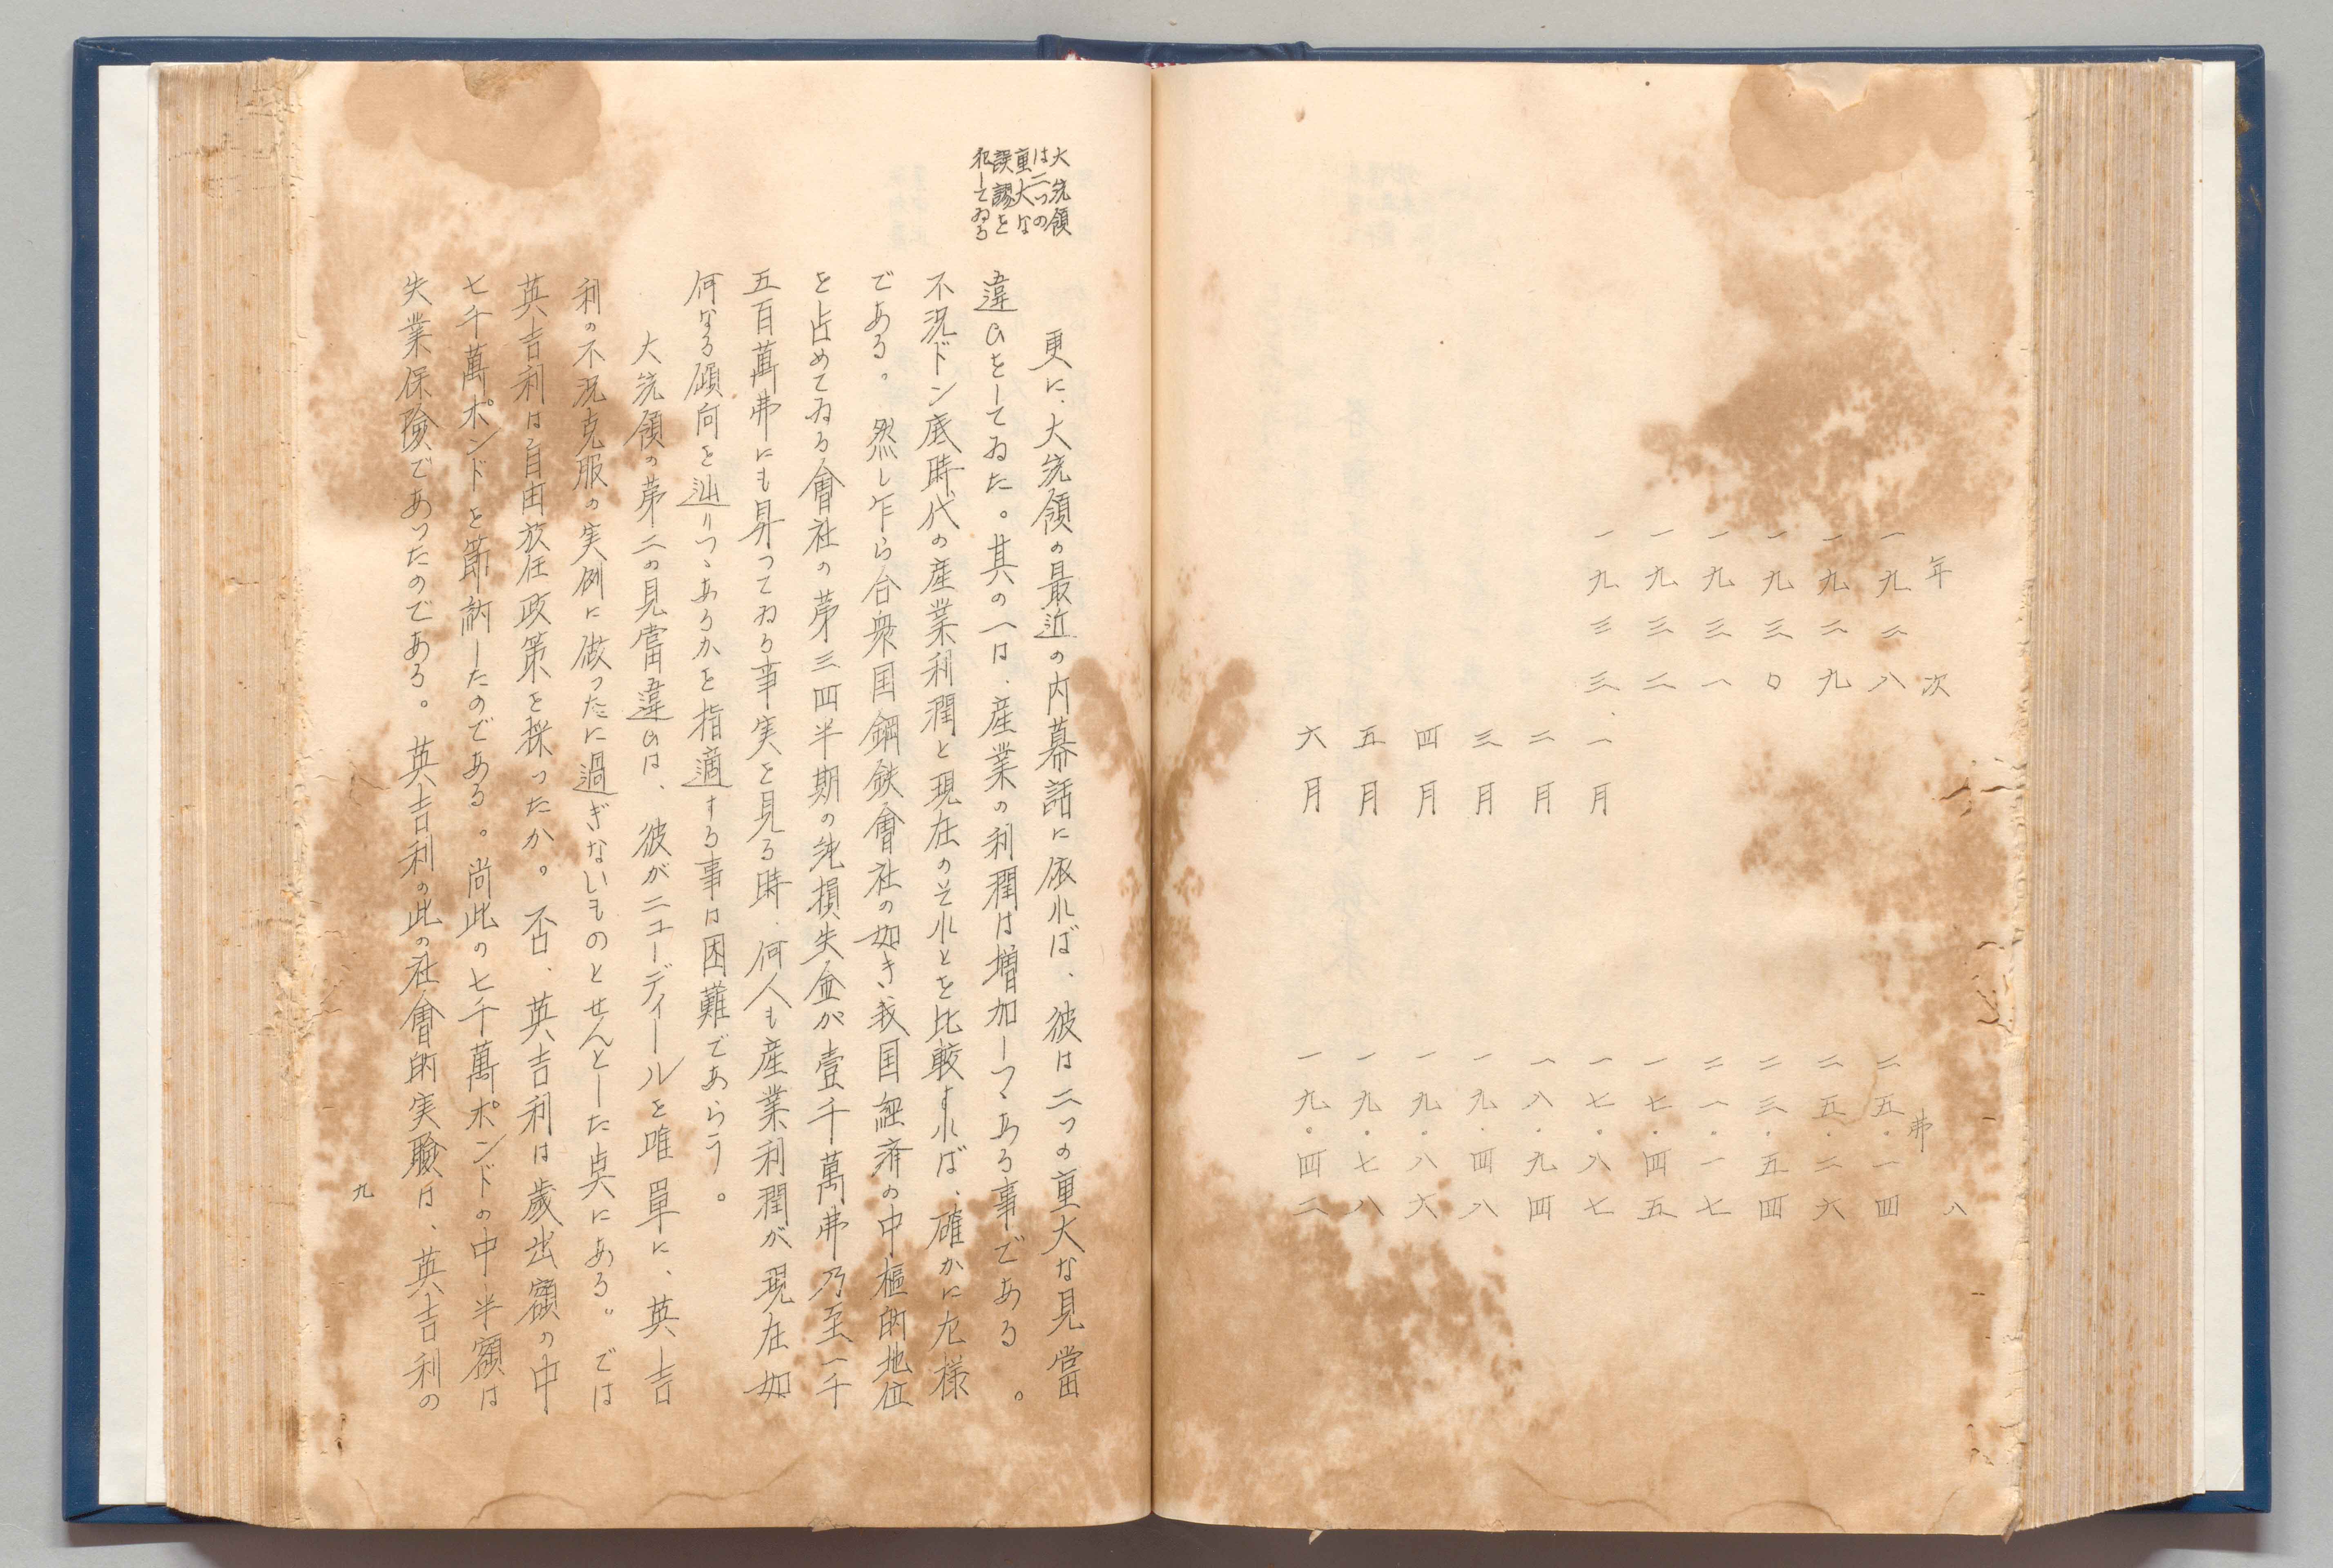 八
年次　弗
一九二八　二五・一四
一九二九　二五・二六
一九三〇　二三・五四
一九三一　二一・一七
一九三二　一七・四五
一九三三・一月　一七・八七
二月　一八・九四
三月　一九・四八
四月　一九・八六
五月　一九・七八
六月　一九・四二
大統領
は二つの
重大な
誤謬を
犯してゐる
更に、大統領の最近の内幕話に依れば、彼は二つの重大な見當
違ひをしてゐた。其の一は、産業の利潤は増加しつゝある事である。
不況ドン底時代の産業利潤と現在のそれとを比較すれば、確かに左様
である。然し乍ら合衆国鋼鉄會社の如き我国経済の中樞的地位
を占めてゐる會社の第三四半期の純損失金が壹千萬弗乃至一千
五百萬弗にも昇つてゐる事実を見る時、何人も産業利潤が現在如
何なる傾向を辿りつゝあるかを指適する事は困難であらう。
大統領の第二の見當違ひは、彼がニューディールを唯單に、英吉
利の不況克服の実例に做つたに過ぎないものとせんとした点にある。では
英吉利は自由放任政策を採つたか。否、英吉利は歳出額の中
七千萬ポンドを節約したのである。尚此の七千萬ポンドの中半額は
失業保険であつたのである。英吉利の此の社會的実験は、英吉利の
九